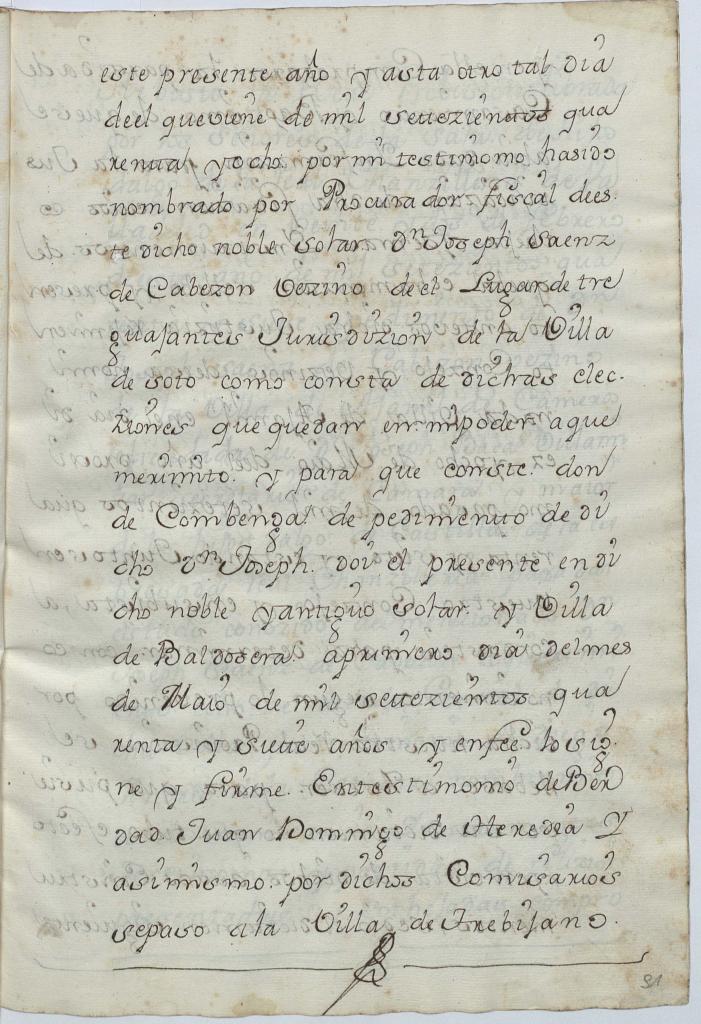 este presente año y asta otro tal dia
de el que viene de mil settezientos qua
renta y ocho por mi testimonio ha sido
nombrado por Procurador fiscal de es.
te dicho noble Solar Dn Joseph Saenz
de Cabezon Vezino de el Lugar de tre
guajantes Jurisdizion de la Villa
de soto como consta de dichas elec.
ziones que quedan en mi poder a que
me rimito. y para que conste don
de Combenga de pedimiento de di
cho Dn Joseph. doi el presente en di
cho noble y antiguo Solar y Villa
de Baldosera a primero dia del mes
de Maio de mil settezientos qua
renta y siette años y en fee lo sig.
ne y firme. En testimonio de Ber
dad Juan Domingo de Heredia Y
asimismo. por dichos Comisarios
se paso a la Villa de Trebijano.
91